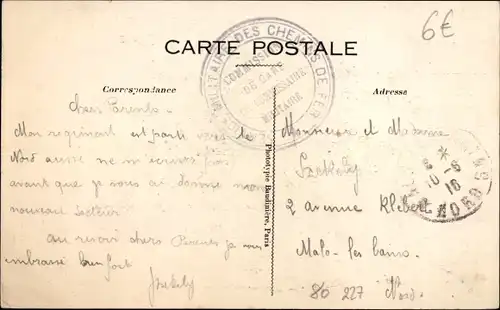 6€
CARTE POSTALE
MILITAIRE DES CHEMINS DE FER
COMMISSION
DE GARE
COMMISSAIRE
MILITAIRE
Correspondance
Adresse
Chers Parents
Mon regiment est parti vers le
Nord aussi ne m'écrivez pas
avant que je vous ai donné mon
nouveau secteur
au revoir chers Parents je vous
embrasse bien fort
Phototypie Baudinière, Paris
Monsieur et Madame
2 avenue Kléber
Malo-les-bains
Nord
10-6
16
NORD